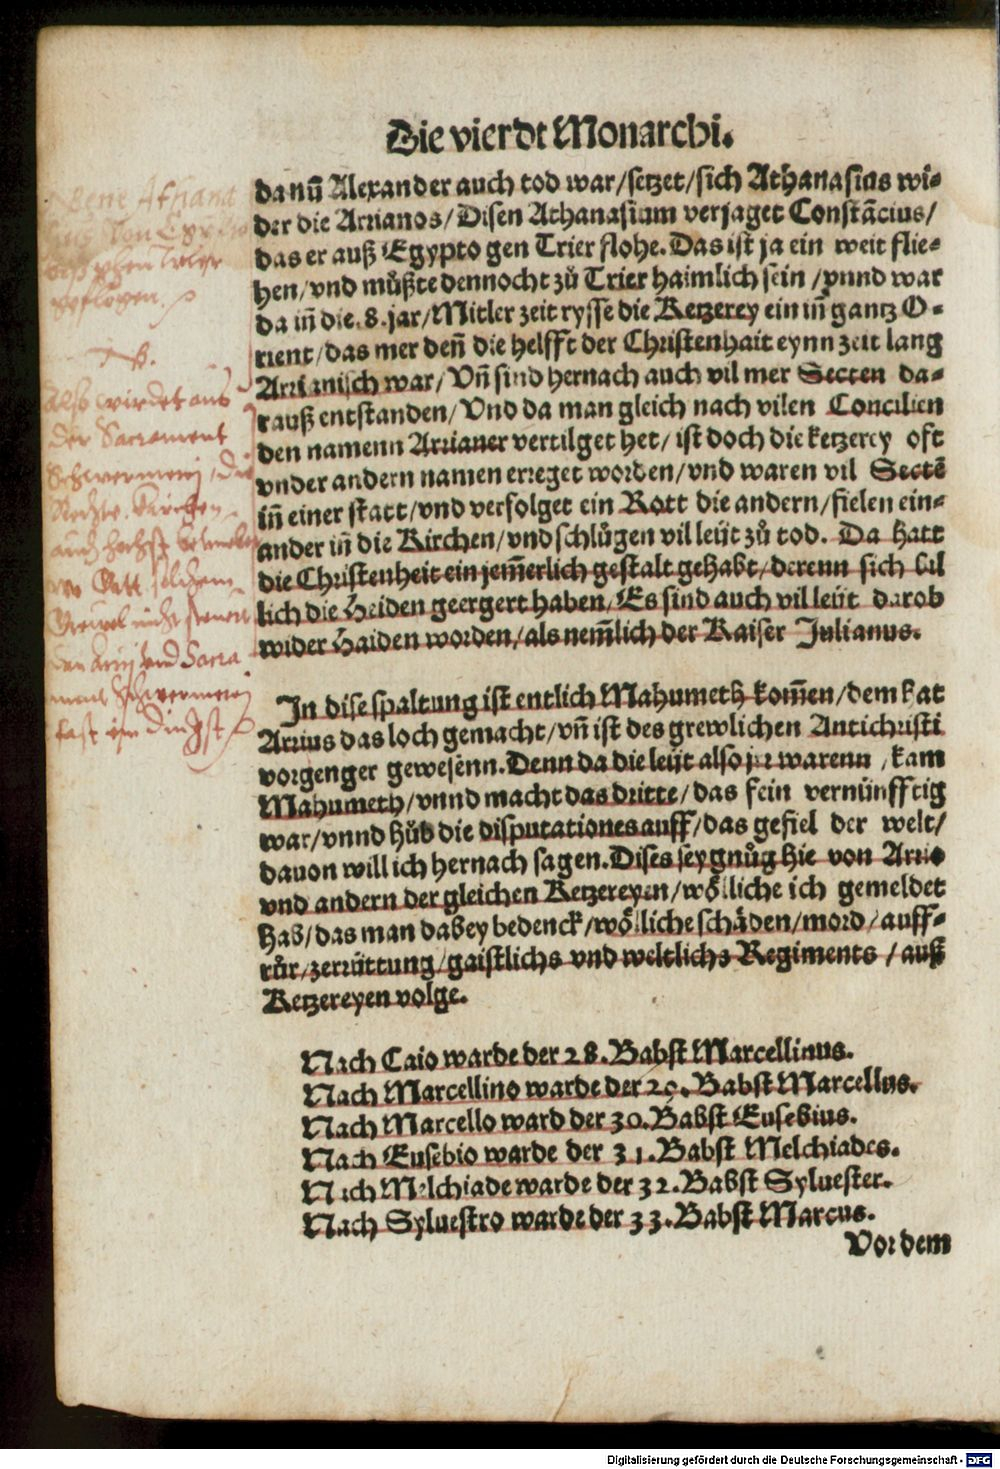 Die vierdt Monarchi.
da nū Alexander auch tod war/setzet/sich Athanasius wi-
der die Arrianos/Disen Athanasium verjaget Constācius/
das er auß Egypto gen Trier flohe. Das ist ja ein weit flie-
hen/vnd můßte dennocht zů Trier haimlich sein/vnnd war
da iñ die. 8. jar/Mitler zeit rysse die Ketzerey ein iñ gantz O-
rient/das mer deñ die helfft der Christenhait eynn zeit lang
Arrianisch war/Vñ sind hernach auch vil mer Secten da-
rauß entstanden/Vnd da man gleich nach vilen Concilien
den namenn Arrianer vertilget het/ist doch die ketzerey offt
vnder andern namen erreget worden/vnd waren vil Sectē
iñ einer statt/vnd verfolget ein Rott die andern/fielen ein-
ander iñ die Kirchen/vnd schlůgen vil leüt zů tod. Da hatt
die Christenheit ein jem̄erlich gestalt gehabt/derenn sich bil
lich die Heiden geergert haben/Es sind auch vil leüt darob
wider Haiden worden/als nem̄lich der Kaiser Julianus.
In dise spaltung ist entlich Mahumeth kom̄en/dem hat
Arrius das loch gemacht/vñ ist des grewlichen Antichristi
vorgenger gewesenn. Denn da die leüt also jre warenn, kam
Mahumeth/vnnd macht das dritte/das fein vernünfftig
war/vnnd hůb die disputationes auff/das gefiel der welt/
dauon will ich hernach sagen. Dises sey gnůg hie von Arrio
vnd andern der gleichen Ketzereyen/wölliche ich gemeldet
hab/das man dabey bedenck/wölliche schäden/mord/auff-
růr/zerrüttung/gaistlichs vnd weltlichs Regiments/auß
Ketzereyen volge.
Nach Caio warde der 28. Babst Marcellinus.
Nach Marcellino warde der 29. Babst Marcellus.
Nach Marcello ward der 30. Babst Eusebius.
Nach Eusebio warde der 31. Babst Melchiades.
Nach Melchiade warde der 32. Babst Syluester.
Nach Syluestro warde der 33. Babst Marcus.
Vor dem
Also wirdet aus
der Sacrament
Schwermerei
Kirchen
Gott
Grewel nicht
vnd Sacra
ment schwermerei
fast ein Ding ist
Digitalisierung gefördert durch die Deutsche Forschungsgemeinschaft - DFG